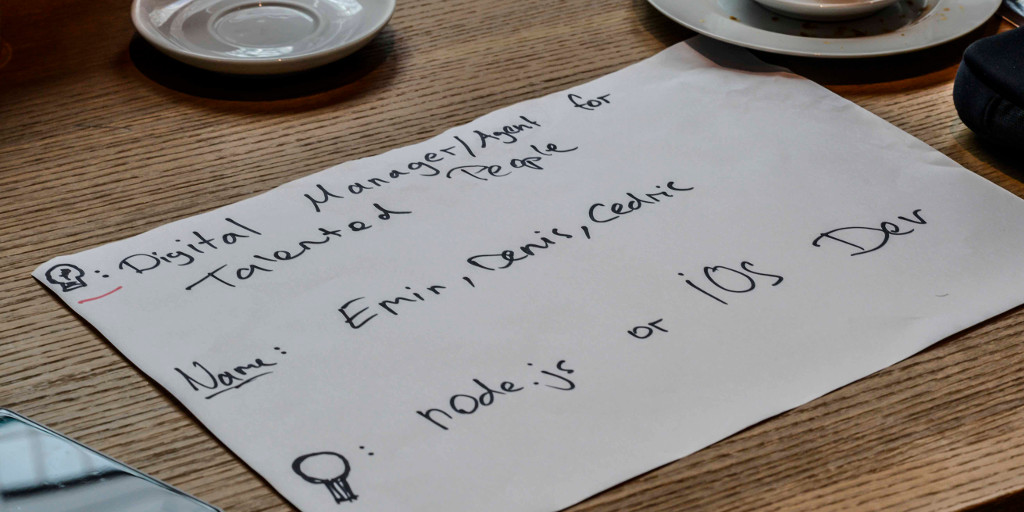 : Digital Manager/Agent for
Talented People
Name: Emin, Denis, Cedric
: node.js or iOS Dev